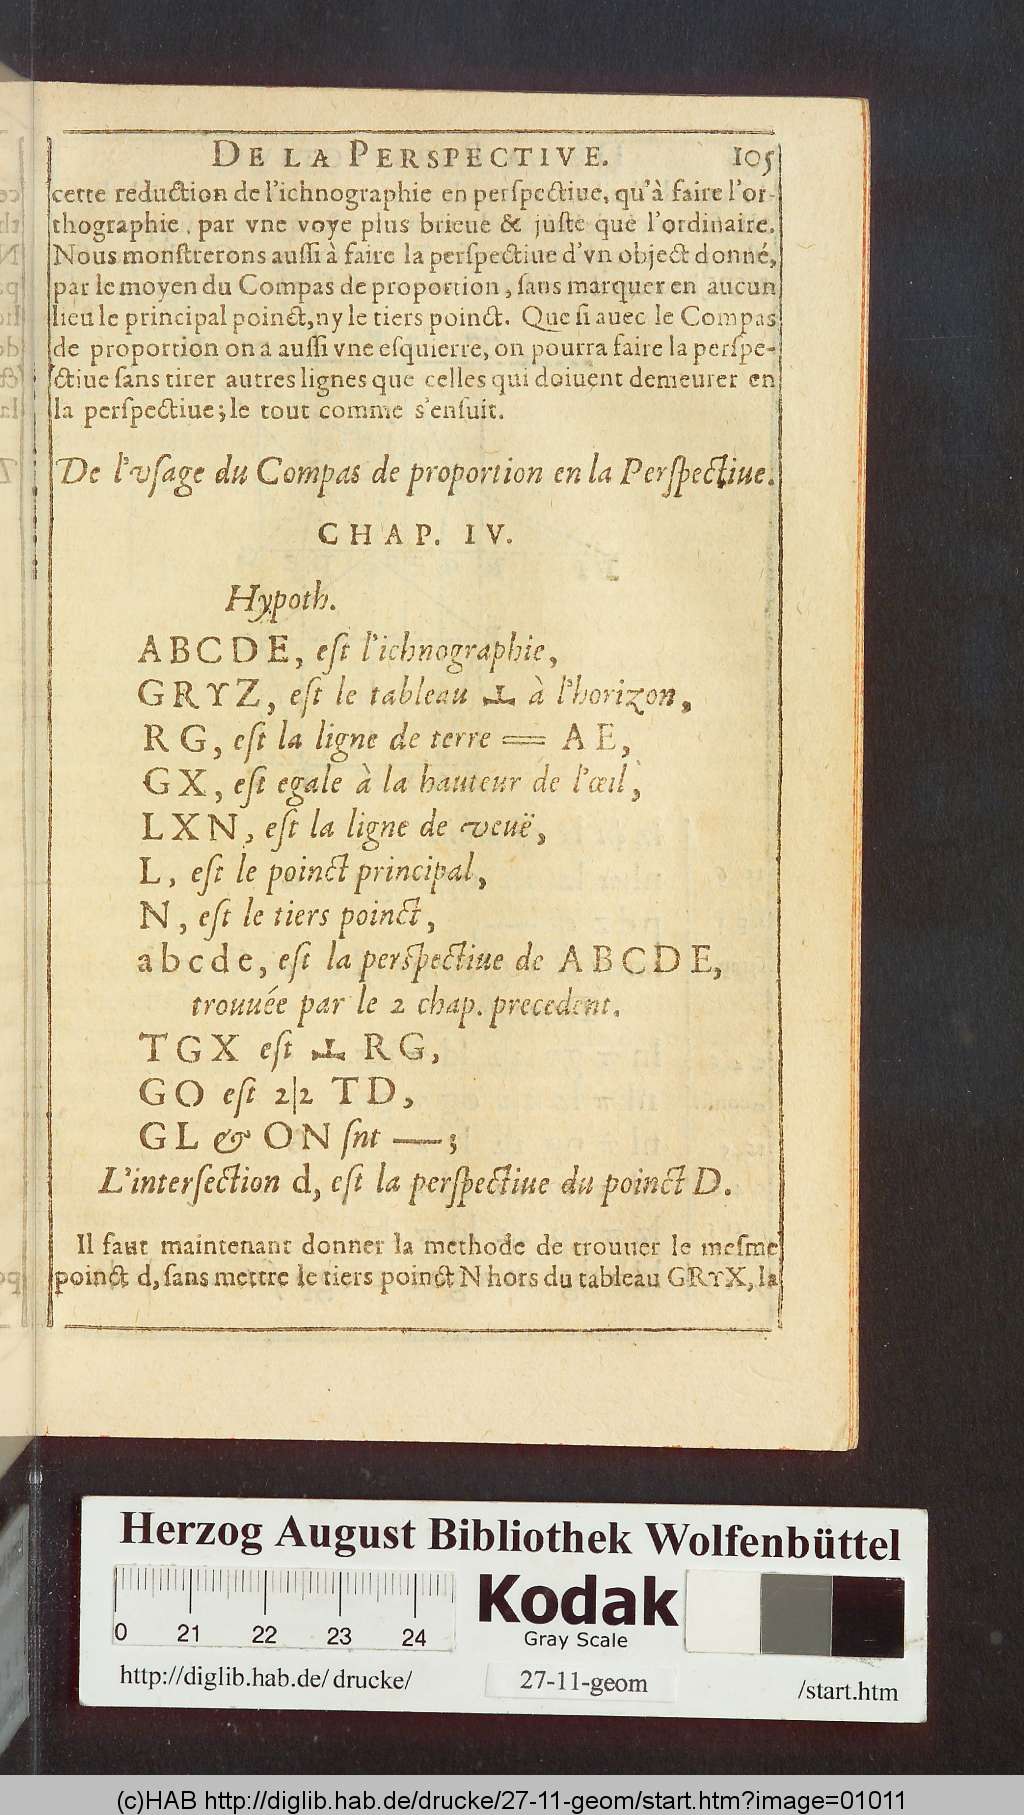 DE LA PERSPECTIVE. 105
cette reduction de l'ichnographie en perſpectiue, qu'à faire l'or-
thographie, par vne voye plus brieue & juſte que l'ordinaire.
Nous monſtrerons auſſi à faire la perſpectiue d'vn object donné,
par le moyen du Compas de proportion, ſans marquer en aucun
lieu le principal poinct, ny le tiers poinct. Que ſi auec le Compas
de proportion on a auſſi vne eſquierre, on pourra faire la perſpe-
ctiue ſans tirer autres lignes que celles qui doiuent demeurer en
la perſpectiue; le tout comme s'enſuit.
De l'vſage du Compas de proportion en la Perſpectiue.
CHAP. IV.
Hypoth.
ABCDE, eſt l'ichnographie,
GRYZ, eſt le tableau ⊥ à l'horizon,
RG, eſt la ligne de terre = AE,
GX, eſt egale à la hauteur de l'œil,
LXN, eſt la ligne de veuë,
L, eſt le poinct principal,
N, eſt le tiers poinct,
abcde, eſt la perſpectiue de ABCDE,
trouuée par le 2 chap. precedent.
TGX eſt ⊥ RG,
GO eſt 2|2 TD,
GL & ON ſnt —;
L'interſection d, eſt la perſpectiue du poinct D.
Il faut maintenant donner la methode de trouuer le meſme
poinct d, ſans mettre le tiers poinct N hors du tableau GRYX, la
Herzog August Bibliothek Wolfenbüttel
0 21 22 23 24
Kodak
Gray Scale
http://diglib.hab.de/drucke/ 27-11-geom /start.htm
(c)HAB http://diglib.hab.de/drucke/27-11-geom/start.htm?image=01011